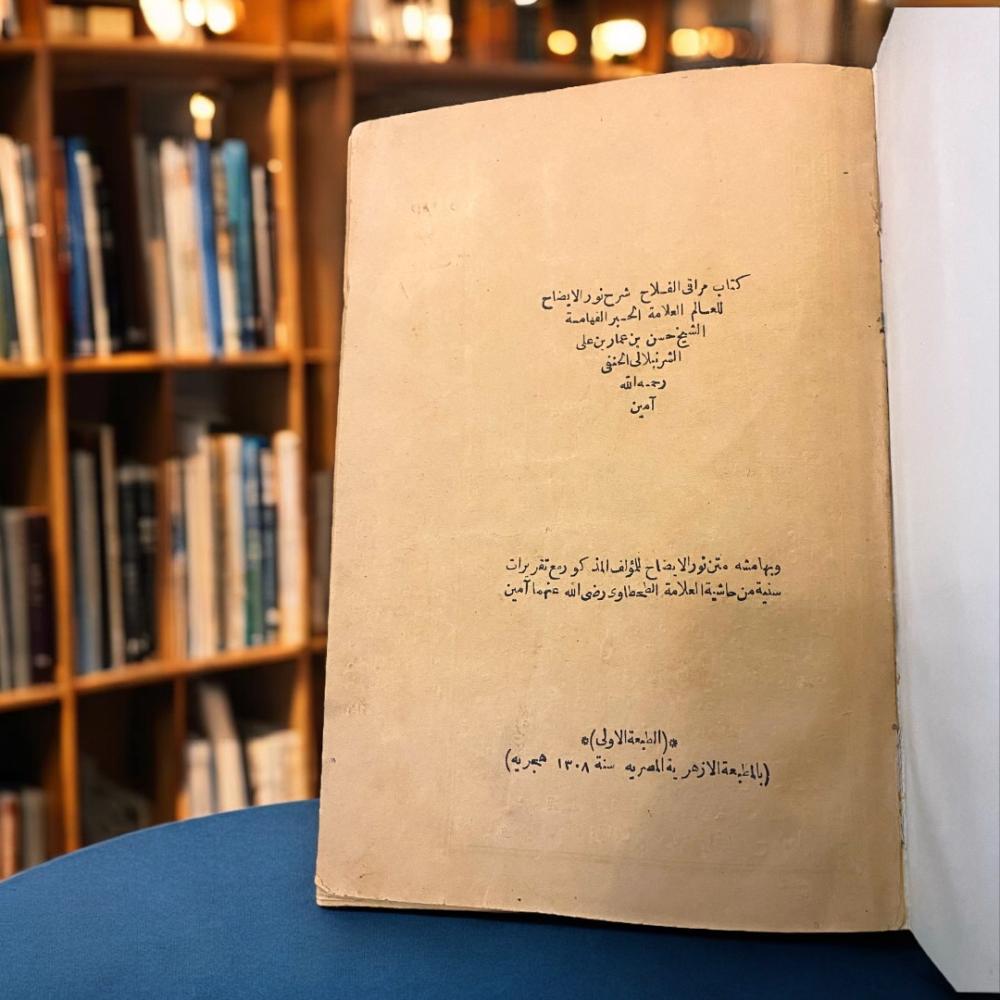 كتاب مراقى الفلاح شرح نور الايضاح
للعالم العلامة الحبر الفهامة
الشيخ حسن بن عمار بن على
الشرنبلالى الحنفى
رحمه الله
آمين
وبهامشه متن نور الايضاح للمؤلف المذكور مع تقريرات
سنية من حاشية العلامة الطحطاوى رضى الله عنهما آمين
*(الطبعة الاولى)*
(بالمطبعة الازهرية المصريه سنة ١٣٠٨ هجريه)